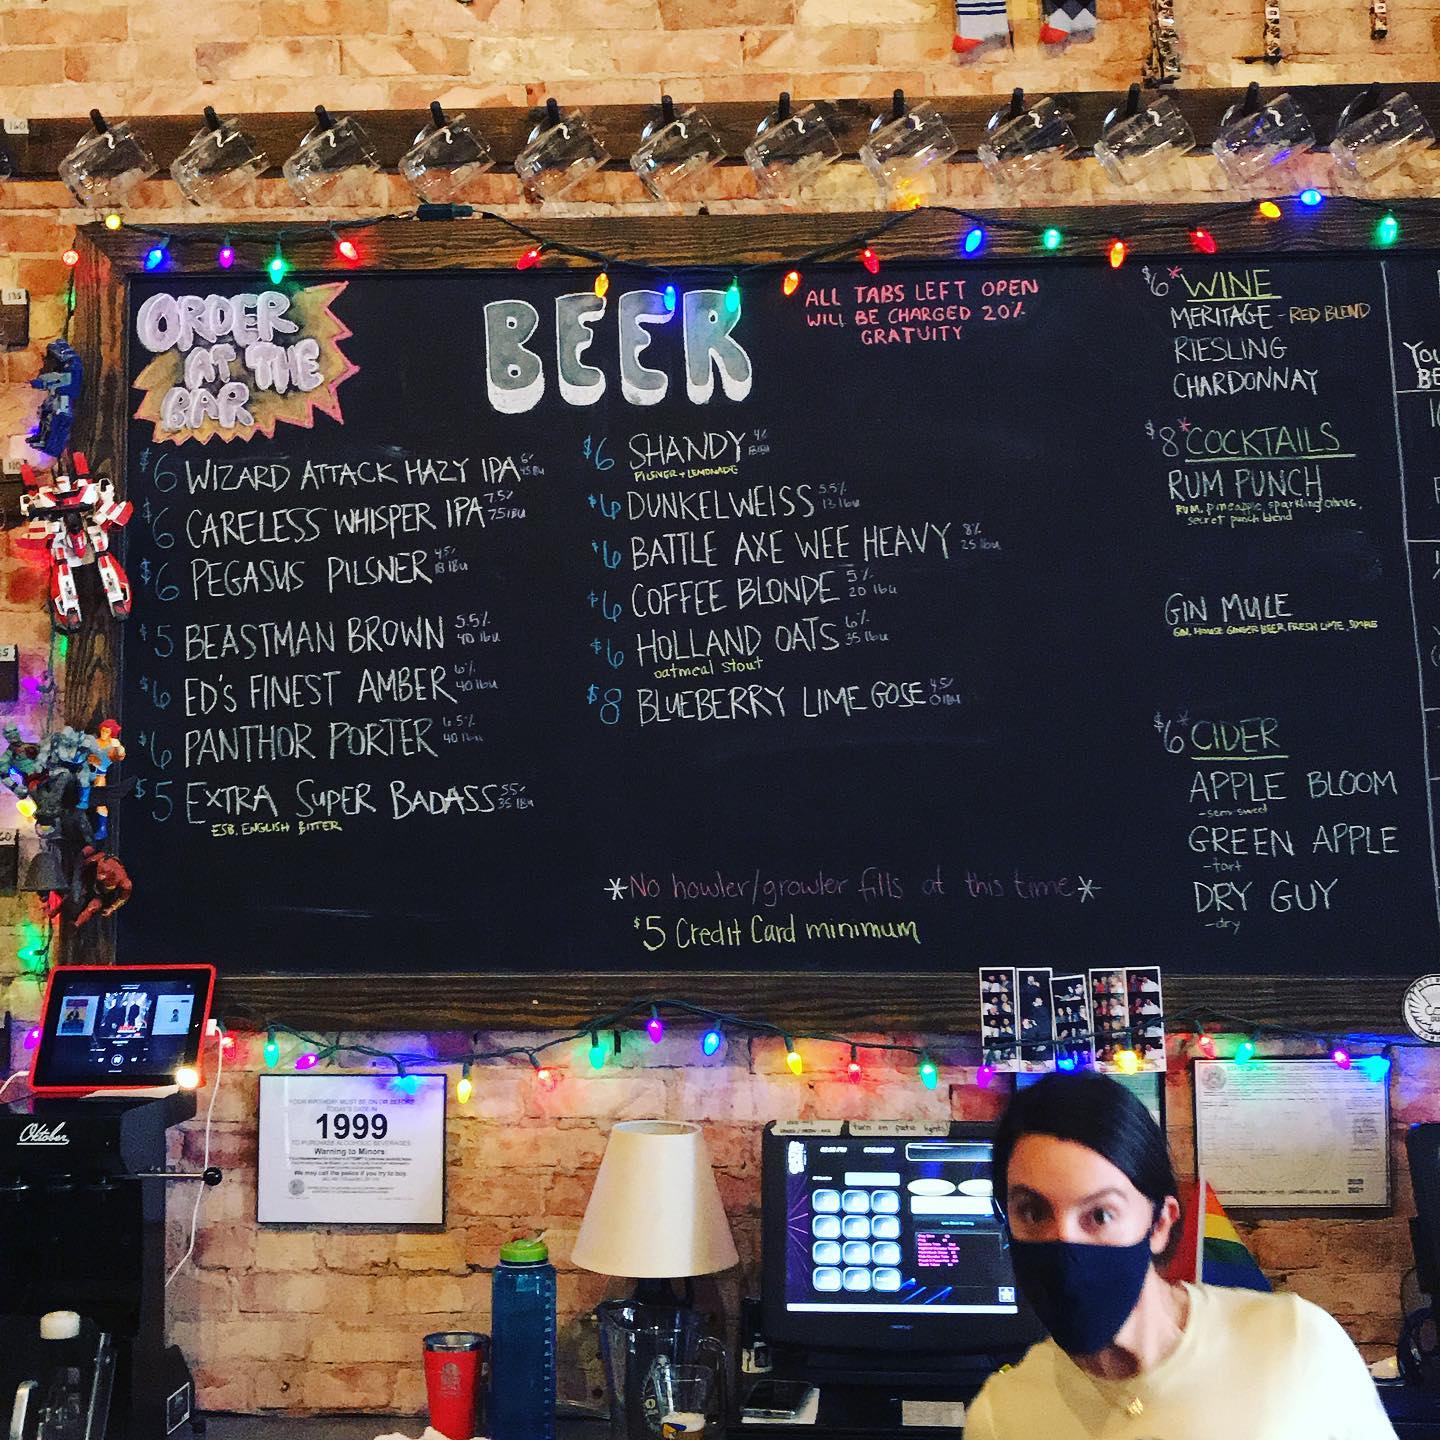 ORDER
AT THE
BAR
BEER
ALL TABS LEFT OPEN
WILL BE CHARGED 20%
GRATUITY
$6 WIZARD ATTACK HAZY IPA 6%
45 IBU
$6 CARELESS WHISPER IPA 7.5%
75 IBU
$6 PEGASUS PILSNER 4.5%
18 IBU
$5 BEASTMAN BROWN 5.5%
40 ibu
$6 ED'S FINEST AMBER 6%
40 ibu
$6 PANTHOR PORTER 6.5%
40 ibu
$5 EXTRA SUPER BADASS 5.5%
35 IBU
ESB, ENGLISH BITTER
$6 SHANDY 4%
PILSNER + LEMONADE
$6 DUNKELWEISS 5.5%
13 ibu
$6 BATTLE AXE WEE HEAVY 8%
25 ibu
$6 COFFEE BLONDE 5%
20 ibu
$6 HOLLAND OATS 6%
35 ibu
oatmeal stout
$8 BLUEBERRY LIME GOSE 4.5%
0 IBU
*No howler/growler fills at this time*
$5 Credit Card minimum
$6* WINE
MERITAGE - RED BLEND
RIESLING
CHARDONNAY
$8* COCKTAILS
RUM PUNCH
RUM, pineapple, sparkling citrus,
secret punch blend
GIN MULE
GIN, HOUSE GINGER BEER, FRESH LIME, SIMPLE
$6* CIDER
APPLE BLOOM
-semi sweet
GREEN APPLE
-tart
DRY GUY
-dry
Oktober
YOUR BIRTHDAY MUST BE ON OR BEFORE
TODAY'S DATE IN
1999
TO PURCHASE ALCOHOLIC BEVERAGES
Warning to Minors:
We may call the police if you try to buy
turn on patio lights